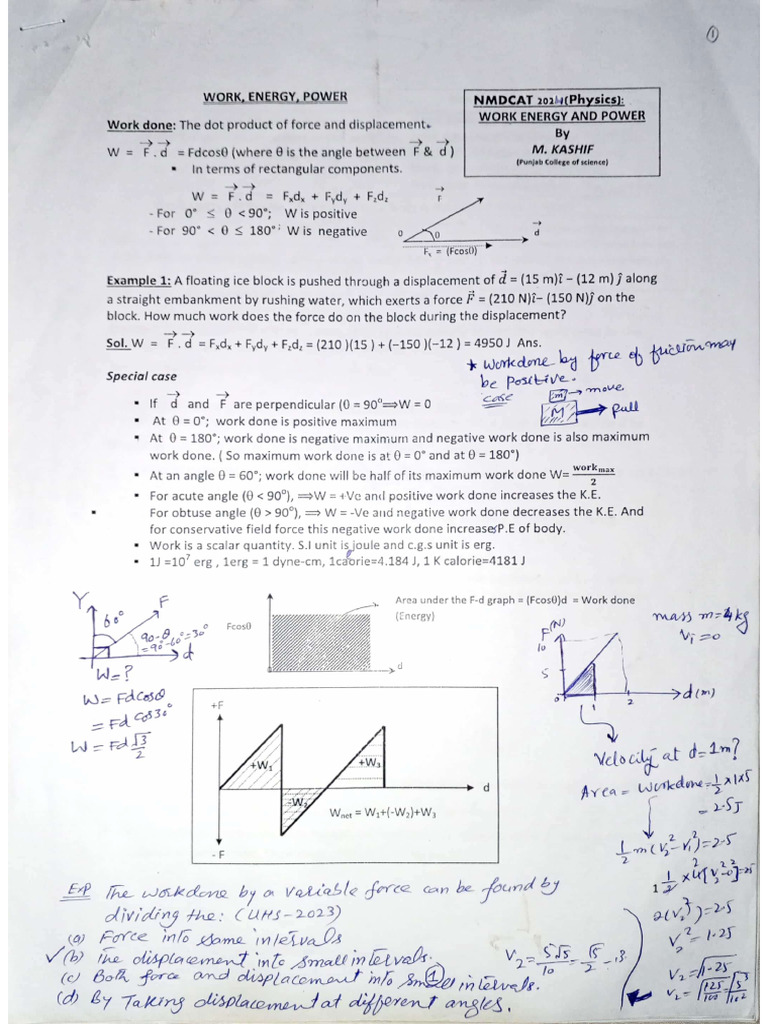 1
WORK, ENERGY, POWER
NMDCAT 2024 (Physics):
WORK ENERGY AND POWER
By
M. KASHIF
(Punjab College of science)
Work done: The dot product of force and displacement.
W = F . d = Fdcosθ (where θ is the angle between F & d )
▪ In terms of rectangular components.
W = F . d = Fxdx + Fydy + Fzdz
- For 0° ≤ θ < 90°; W is positive
- For 90° < θ ≤ 180°: W is negative
F
0 θ d
Fx = (Fcosθ)
Example 1: A floating ice block is pushed through a displacement of d = (15 m)î – (12 m) ĵ along
a straight embankment by rushing water, which exerts a force F = (210 N)î– (150 N)ĵ on the
block. How much work does the force do on the block during the displacement?
Sol. W = F . d = Fxdx + Fydy + Fzdz = (210 )(15 ) + (–150 )(–12 ) = 4950 J Ans.
* Workdone by force of friction may
be positive.
case
m → move
M → pull
Special case
▪ If d and F are perpendicular (θ = 90°⟹W = 0
▪ At θ = 0°; work done is positive maximum
▪ At θ = 180°; work done is negative maximum and negative work done is also maximum
work done. ( So maximum work done is at θ = 0° and at θ = 180°)
▪ At an angle θ = 60°; work done will be half of its maximum work done W= work max / 2
▪ For acute angle (θ < 90°), ⟹W = +Ve and positive work done increases the K.E.
▪ For obtuse angle (θ > 90°), ⟹ W = -Ve and negative work done decreases the K.E. And
for conservative field force this negative work done increases P.E of body.
▪ Work is a scalar quantity. S.I unit is joule and c.g.s unit is erg.
▪ 1J =10⁷ erg , 1erg = 1 dyne-cm, 1calorie=4.184 J, 1 K calorie=4181 J
Y
60° F
90-θ
=90-60=30°
d
W=?
W= Fdcosθ
= Fd cos30°
W= Fd √3/2
Fcosθ
d
Area under the F-d graph = (Fcosθ)d = Work done
(Energy)
F(N)
10
5
0 1 2 d(m)
mass m=4kg
Vi=0
Velocity at d=1m?
Area = Workdone=1/2 x1x5
= 2.5J
1/2 m(V2²-V1²)=2.5
2(V2²)=2.5
V2²=1.25
V2=√1.25
+F
+W1
-W2
+W3
d
Wnet = W1+(-W2)+W3
- F
Exp The workdone by a variable force can be found by
dividing the: (UHS-2023)
(a) Force into same intervals
✓(b) The displacement into small intervals.
(c) Both force and displacement into small intervals.
(d) By Taking displacement at different angles.
1